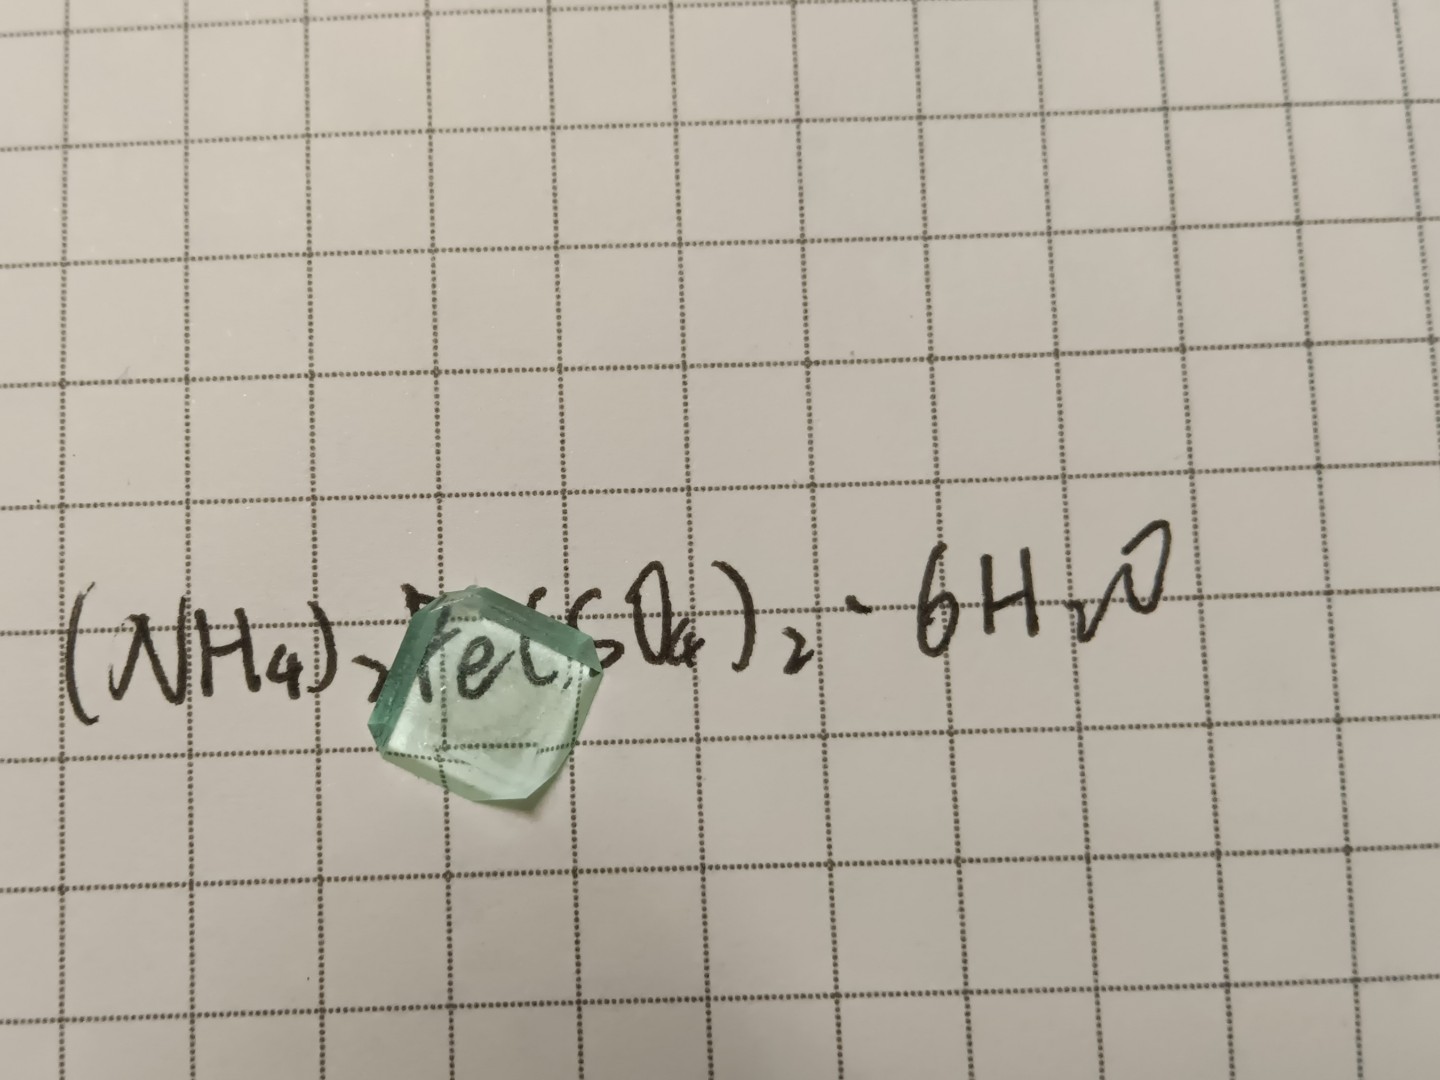 (NH₄)₂Fe(SO₄)₂·6H₂O